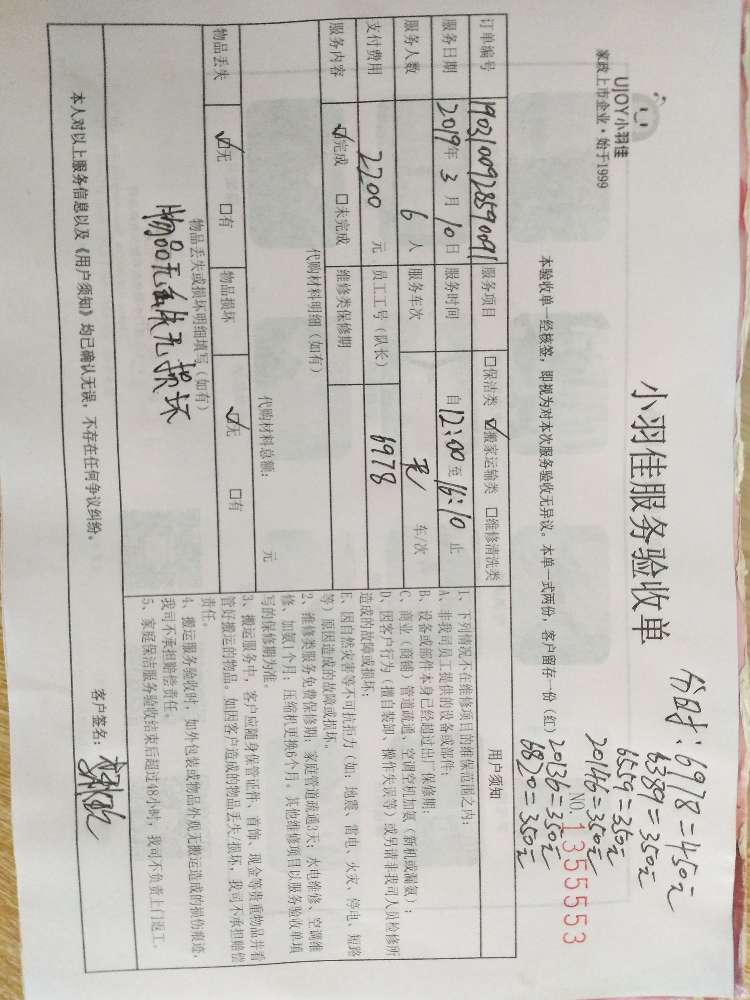 UJOY小羽佳
家政上市企业·始于1999
小羽佳服务验收单
分时:6978=450元
6389=350元
6559=350元
20146=350元
20136=350元
6820=350元
NO.1355553
本验收单一经核签,即视为对本次服务验收无异议。本单一式两份,客户留存一份(红)
订单编号 1903100928590091 服务项目 □保洁类 ☑搬家运输类 □维修清洗类
服务日期 2019年3月10日 服务时间 自12:00至16:10止
服务人数 6人 服务车次 车/次
支付费用 2200元 员工工号(队长) 6978
服务内容 ☑完成 □未完成 维修类保修期
代购材料明细(如有)
代购材料总额: 元
物品丢失 ☑无 □有 物品损坏 ☑无 □有
物品丢失或损坏明细填写(如有)
物品无丢失无损坏
用户须知
1、下列情况不在维修项目的维保范围之内:
A、非我司员工提供的设备或部件;
B、设备或部件本身已经超过出厂保修期;
C、商业(商铺)管道疏通、空调空机加氨(新机或漏氨);
D、因客户行为(擅自装卸、操作失误等)或另请非我司人员检修所
造成的故障或损坏;
E、因自然灾害等不可抗拒力(如:地震、雷电、火灾、停电、短路
等)原因造成的故障或损坏。
2、维修类服务免费保修期:家庭管道疏通3天;水电维修、空调维
修、加氨1个月;压缩机更换6个月。其他维修项目以服务验收单填
写的保修期为准。
3、搬运服务中,客户应随身保管证件、首饰、现金等贵重物品并看
管好搬运的物品。如因客户造成的物品丢失/损坏,我司不承担赔偿
责任。
4、搬运服务验收时,如外包装或物品外观无搬运造成的损伤痕迹,
我司不承担赔偿责任。
5、家庭保洁服务验收结束后超过48小时,我司不负责上门返工。
本人对以上服务信息以及《用户须知》均已确认无误,不存在任何争议纠纷。
客户签名: